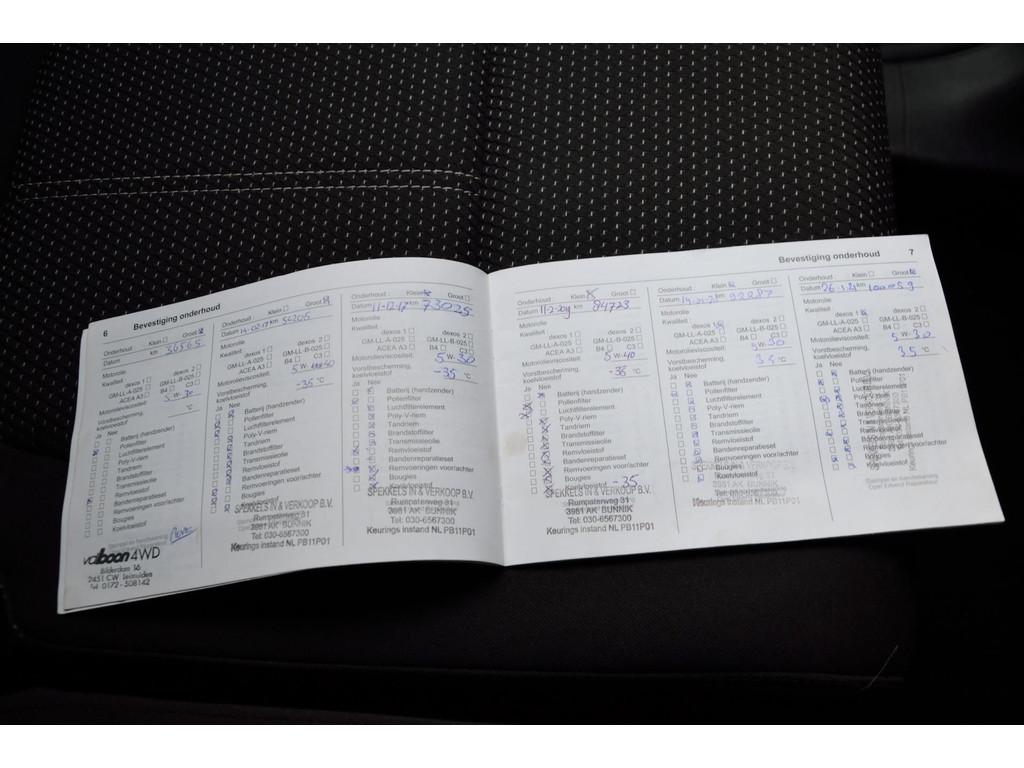 6 Bevestiging onderhoud
Onderhoud: Klein Groot
Datum km 36565
Motorolie
Kwaliteit dexos 1 dexos 2
GM-LL-A-025 GM-LL-B-025
ACEA A3 B4 C3
Motorolieviscositeit: 5 W-30
Vorstbescherming, koelvloeistof °C
Ja Nee
Batterij (handzender)
Pollenfilter
Luchtfilterelement
Poly-V-riem
Tandriem
Brandstoffilter
Transmissieolie
Remvloeistof
Bandenreparatieset
Remvoeringen voor/achter
Bougies
Koelvloeistof
4WD
Bilderdam 16
2451 CW Leimuiden
Tel 0172-508142
Onderhoud: Klein Groot
Datum 14-02-17 km
Motorolie
Kwaliteit: dexos 1 dexos 2
GM-LL-A-025 GM-LL-B-025
ACEA A3 B4 C3
Motorolieviscositeit: 5 W 40
Vorstbescherming, koelvloeistof -35 °C
Ja Nee
Batterij (handzender)
Pollenfilter
Luchtfilterelement
Poly-V-riem
Tandriem
Brandstoffilter
Transmissieolie
Remvloeistof
Bandenreparatieset
Remvoeringen voor/achter
Bougies
SPEKKELS IN & VERKOOP B.V.
Rumpsterweg 31
3981 AK BUNNIK
Tel: 030-6567300
Keurings instand NL PB11P01
Onderhoud: Klein Groot
Datum 11-12-17 km 73025
Motorolie
Kwaliteit: dexos 1 dexos 2
GM-LL-A-025 GM-LL-B-025
ACEA A3 B4 C3
Motorolieviscositeit: 5 W 30
Vorstbescherming, koelvloeistof -35 °C
Ja Nee
Batterij (handzender)
Pollenfilter
Luchtfilterelement
Poly-V-riem
Tandriem
Brandstoffilter
Transmissieolie
Remvloeistof
Bandenreparatieset
Remvoeringen voor/achter
Bougies
Koelvloeistof
SPEKKELS IN & VERKOOP B.V.
Rumpsterweg 31
3981 AK BUNNIK
Tel: 030-6567300
Keurings instand NL PB11P01
Bevestiging onderhoud 7
Onderhoud: Klein Groot
Datum 11-2-2019 km 84723
Motorolie
Kwaliteit: dexos 1 dexos 2
GM-LL-A-025 GM-LL-B-025
ACEA A3 B4 C3
Motorolieviscositeit: 5 W-40
Vorstbescherming, koelvloeistof -35 °C
Ja Nee
Batterij (handzender)
Pollenfilter
Luchtfilterelement
Poly-V-riem
Tandriem
Brandstoffilter
Transmissieolie
Remvloeistof
Bandenreparatieset
Remvoeringen voor/achter
Bougies
Koelvloeistof -35
SPEKKELS IN & VERKOOP B.V.
Rumpsterweg 31
3981 AK BUNNIK
Tel: 030-6567300
Keurings instand NL PB11P01
Onderhoud: Klein Groot
Datum km 92287
Motorolie
Kwaliteit: dexos 1 dexos 2
GM-LL-A-025 GM-LL-B-025
ACEA A3 B4 C3
Motorolieviscositeit: 5 W-30
Vorstbescherming, koelvloeistof 35 °C
Ja Nee
Batterij (handzender)
Pollenfilter
Luchtfilterelement
Poly-V-riem
Tandriem
Brandstoffilter
Transmissieolie
Remvloeistof
Bandenreparatieset
Remvoeringen voor/achter
Bougies
Koelvloeistof
3981 AK BUNNIK
Tel: 030-6567300
Keurings instand NL PB11P01
Onderhoud: Klein Groot
Datum 26-1-21 km
Motorolie
Kwaliteit: dexos 1 dexos 2
GM-LL-A-025 GM-LL-B-025
ACEA A3 B4 C3
Motorolieviscositeit: 5 W 30
Vorstbescherming, koelvloeistof 35 °C
Ja Nee
Batterij (handzender)
Pollenfilter
Luchtfilterelement
Poly-V-riem
Tandriem
Brandstoffilter
Transmissieolie
Remvloeistof
Bandenreparatieset
Remvoeringen voor/achter
Bougies
Koelvloeistof
Keurings instand NL PB11P01
Stempel en handtekening
Opel Erkend Reparateur